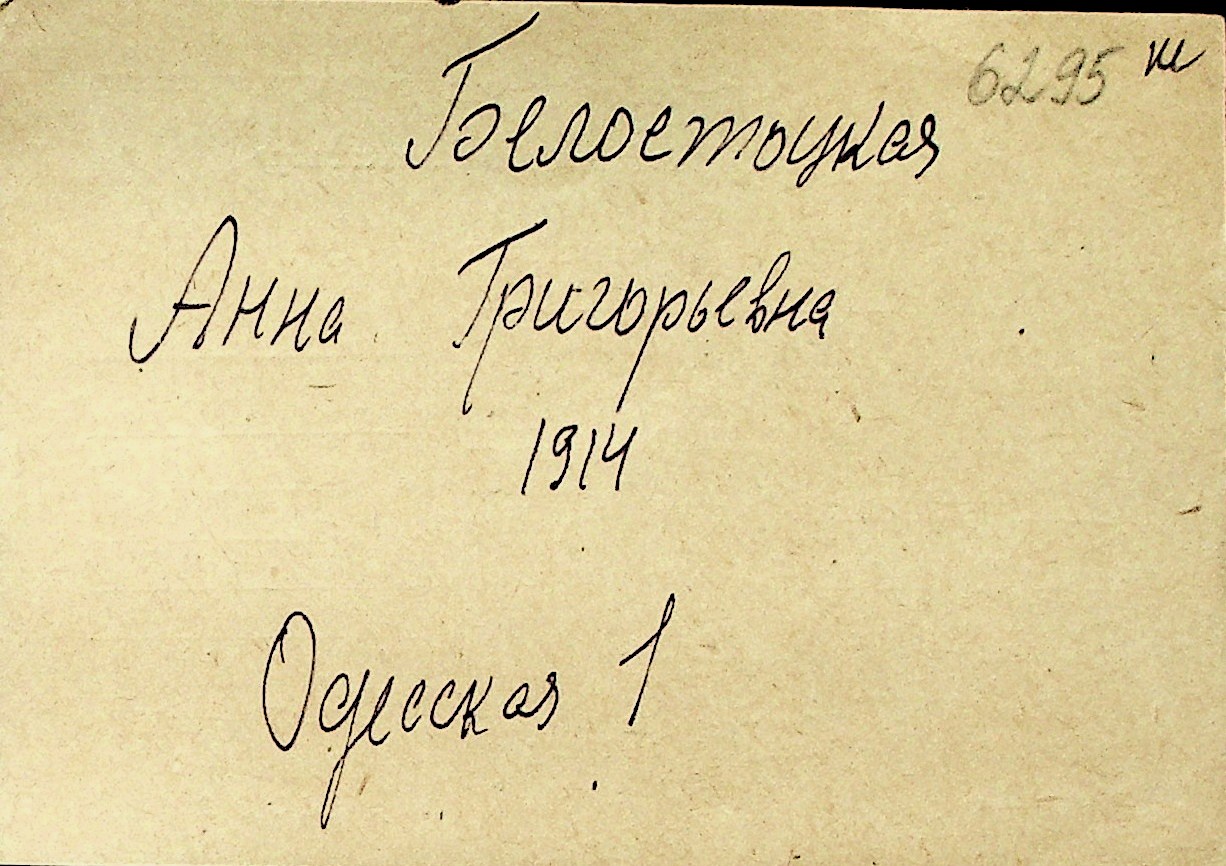 6295 ш
Белостоцкая
Анна Григорьевна
1914
Одесская 1